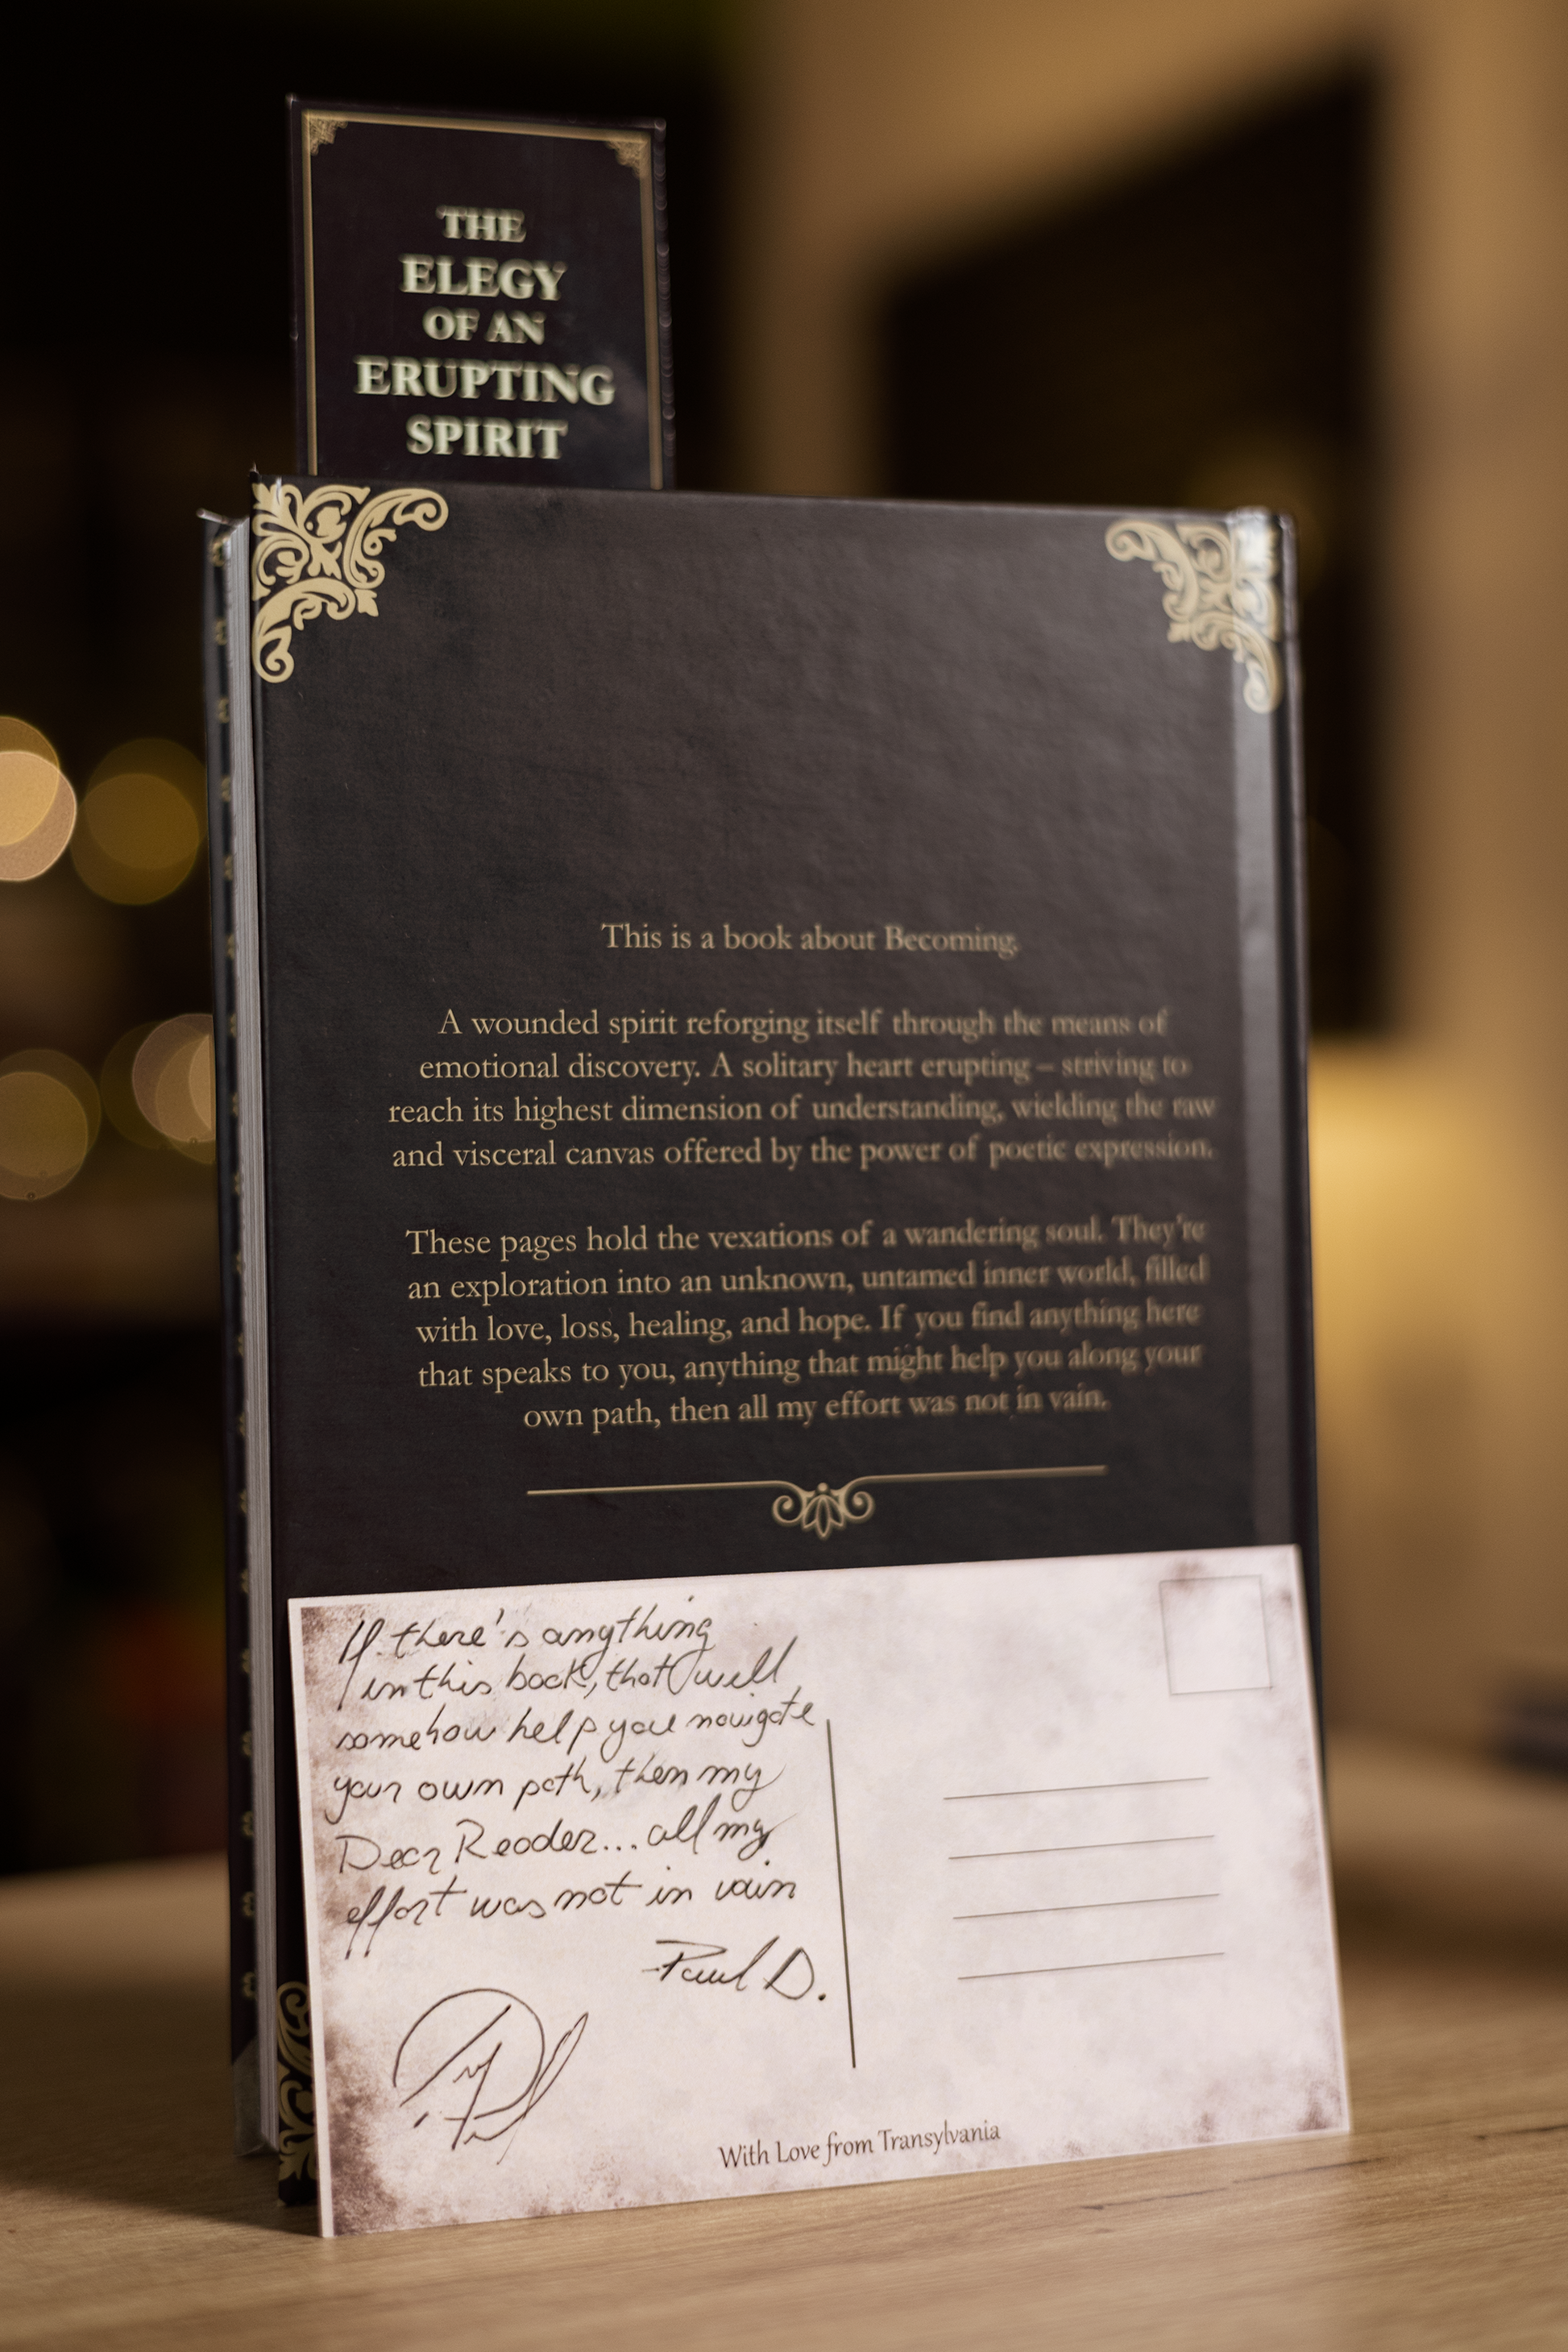 THE
ELEGY
OF AN
ERUPTING
SPIRIT
This is a book about Becoming.
A wounded spirit reforging itself through the means of
emotional discovery. A solitary heart erupting – striving to
reach its highest dimension of understanding, wielding the raw
and visceral canvas offered by the power of poetic expression.
These pages hold the vexations of a wandering soul. They're
an exploration into an unknown, untamed inner world, filled
with love, loss, healing, and hope. If you find anything here
that speaks to you, anything that might help you along your
own path, then all my effort was not in vain.
If there's anything
in this book, that will
somehow help you navigate
your own path, then my
Dear Reader... all my
effort was not in vain
Paul D.
With Love from Transylvania